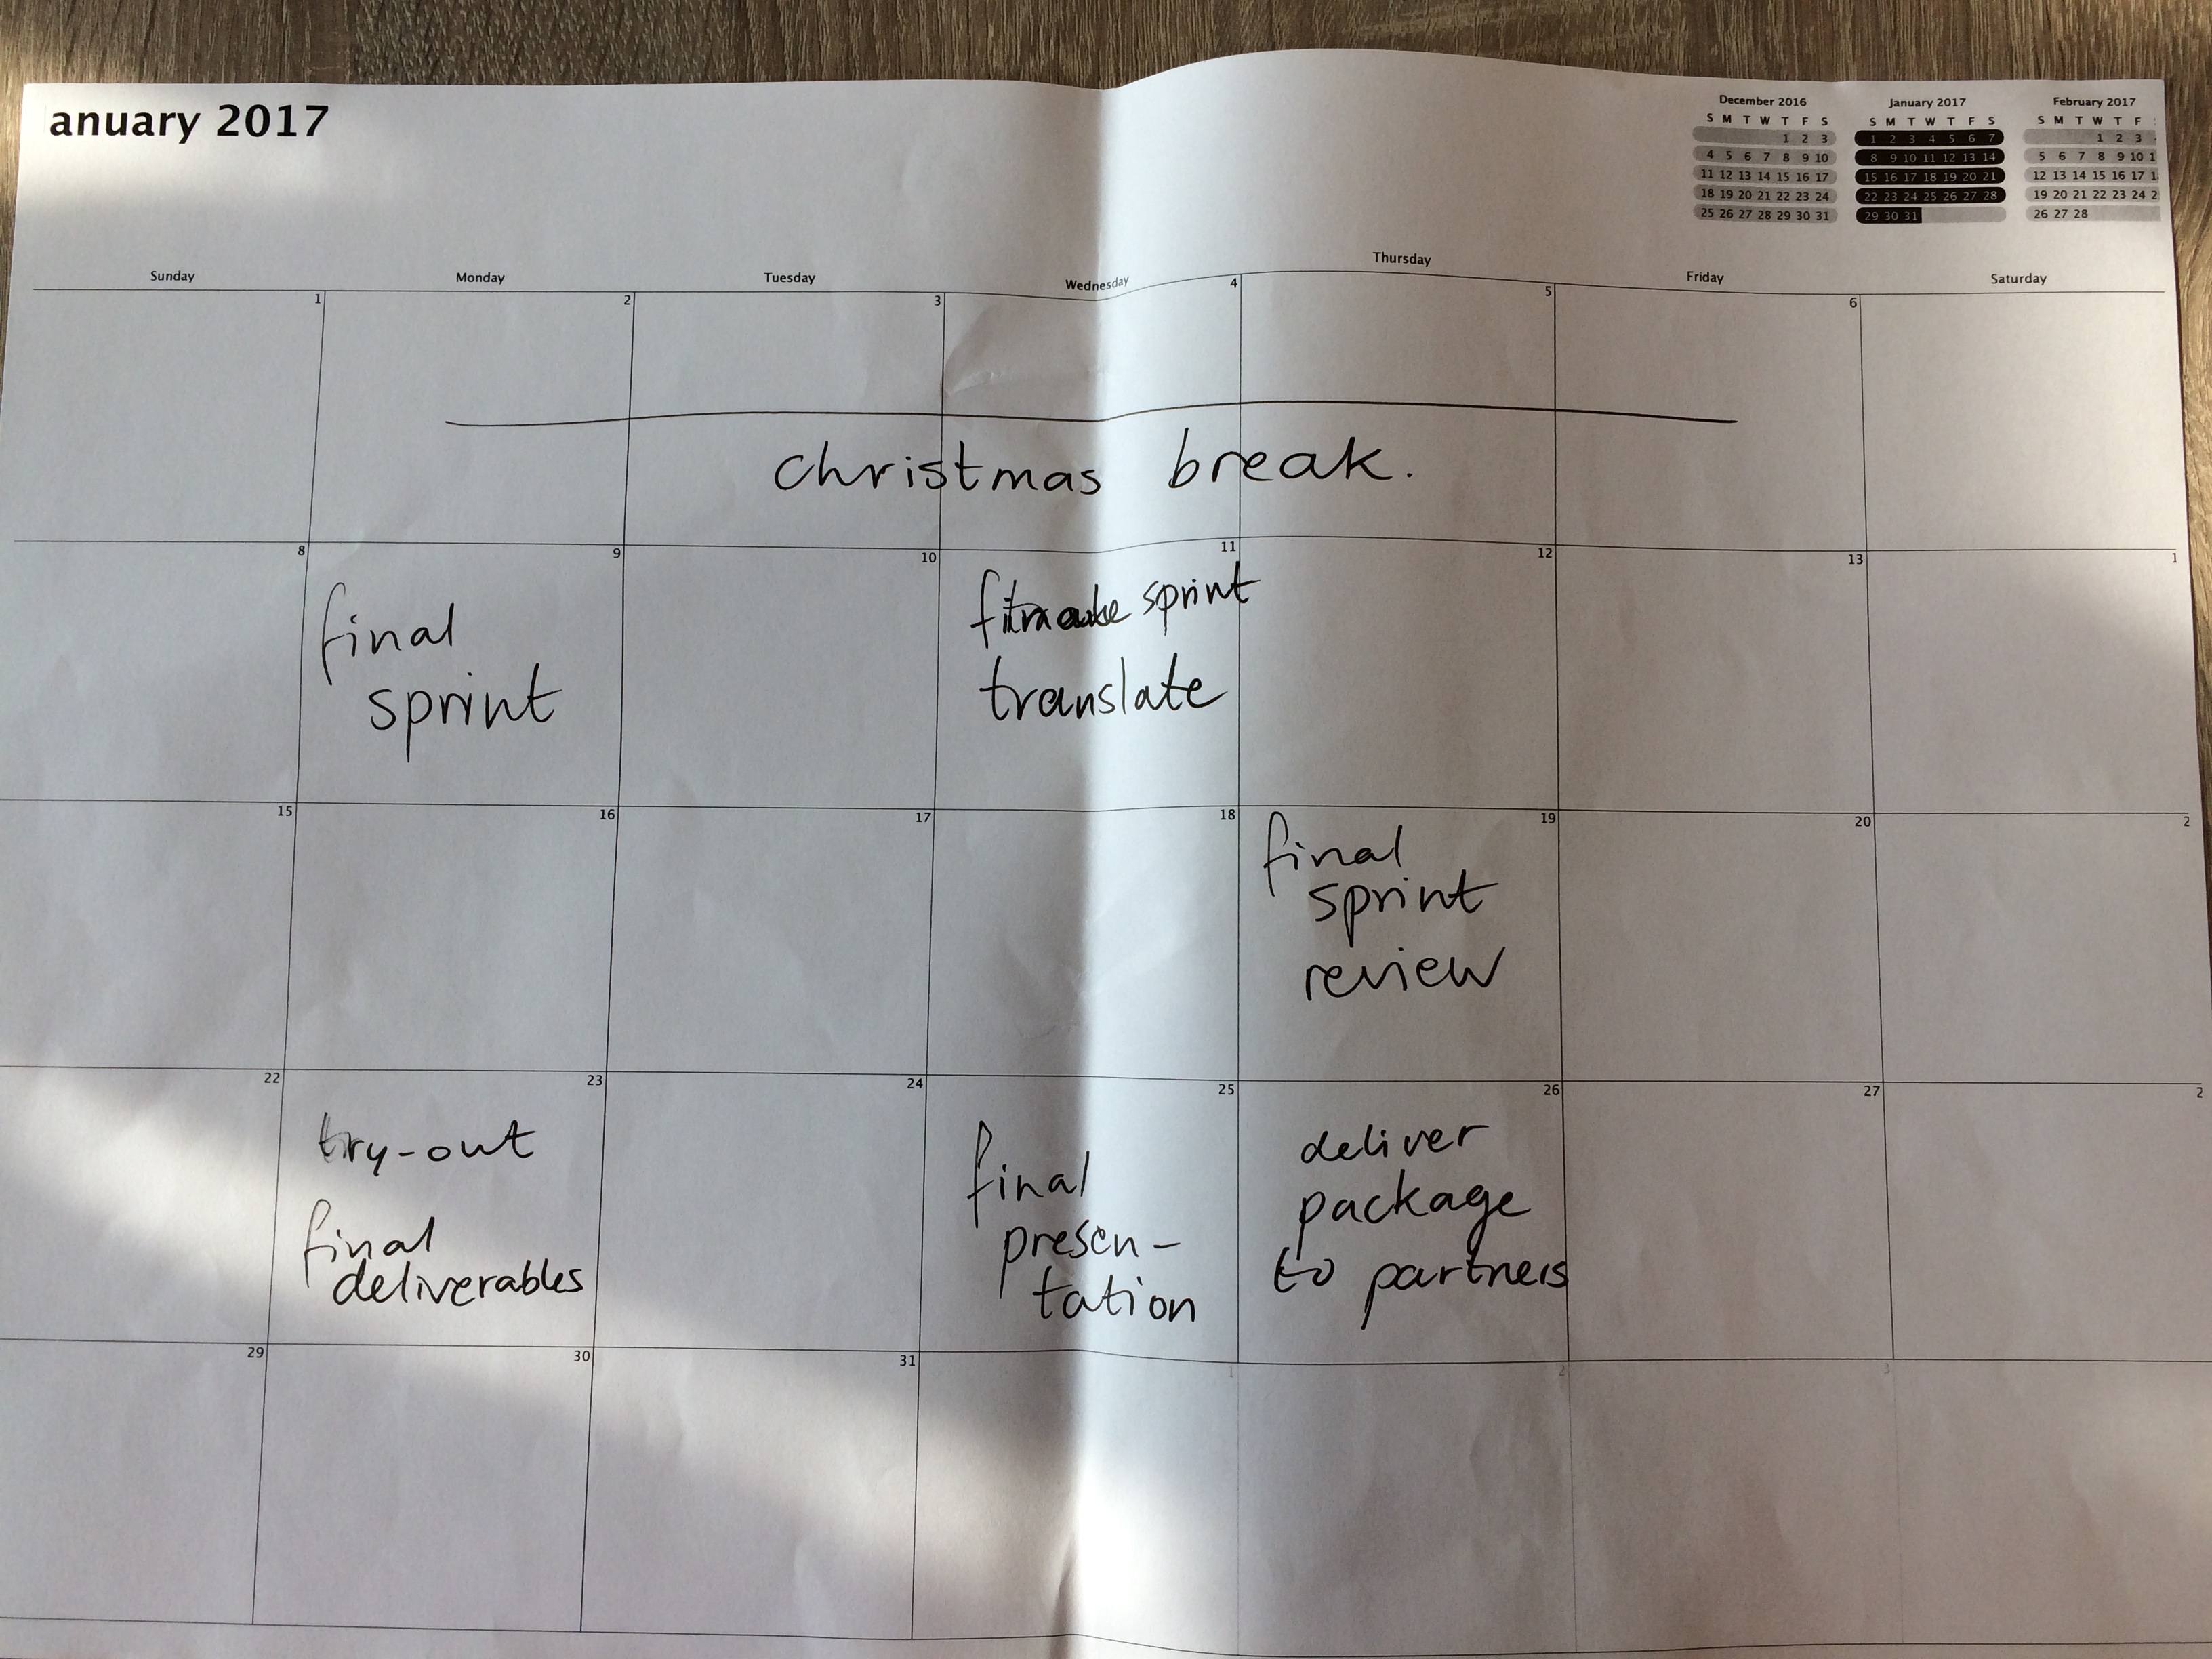 anuary 2017
December 2016
S M T W T F S
1 2 3
4 5 6 7 8 9 10
11 12 13 14 15 16 17
18 19 20 21 22 23 24
25 26 27 28 29 30 31
January 2017
S M T W T F S
1 2 3 4 5 6 7
8 9 10 11 12 13 14
15 16 17 18 19 20 21
22 23 24 25 26 27 28
29 30 31
February 2017
S M T W T F
1 2 3
5 6 7 8 9 10 1
12 13 14 15 16 17 1
19 20 21 22 23 24 2
26 27 28
Sunday Monday Tuesday Wednesday Thursday Friday Saturday
1 2 3 4 5 6
christmas break.
8 9 10 11 12 13 1
final
sprint
sprint
translate
15 16 17 18 19 20 2
final
sprint
review
22 23 24 25 26 27 2
try-out
final
deliverables
final
presen-
tation
deliver
package
to partners
29 30 31 1 2 3